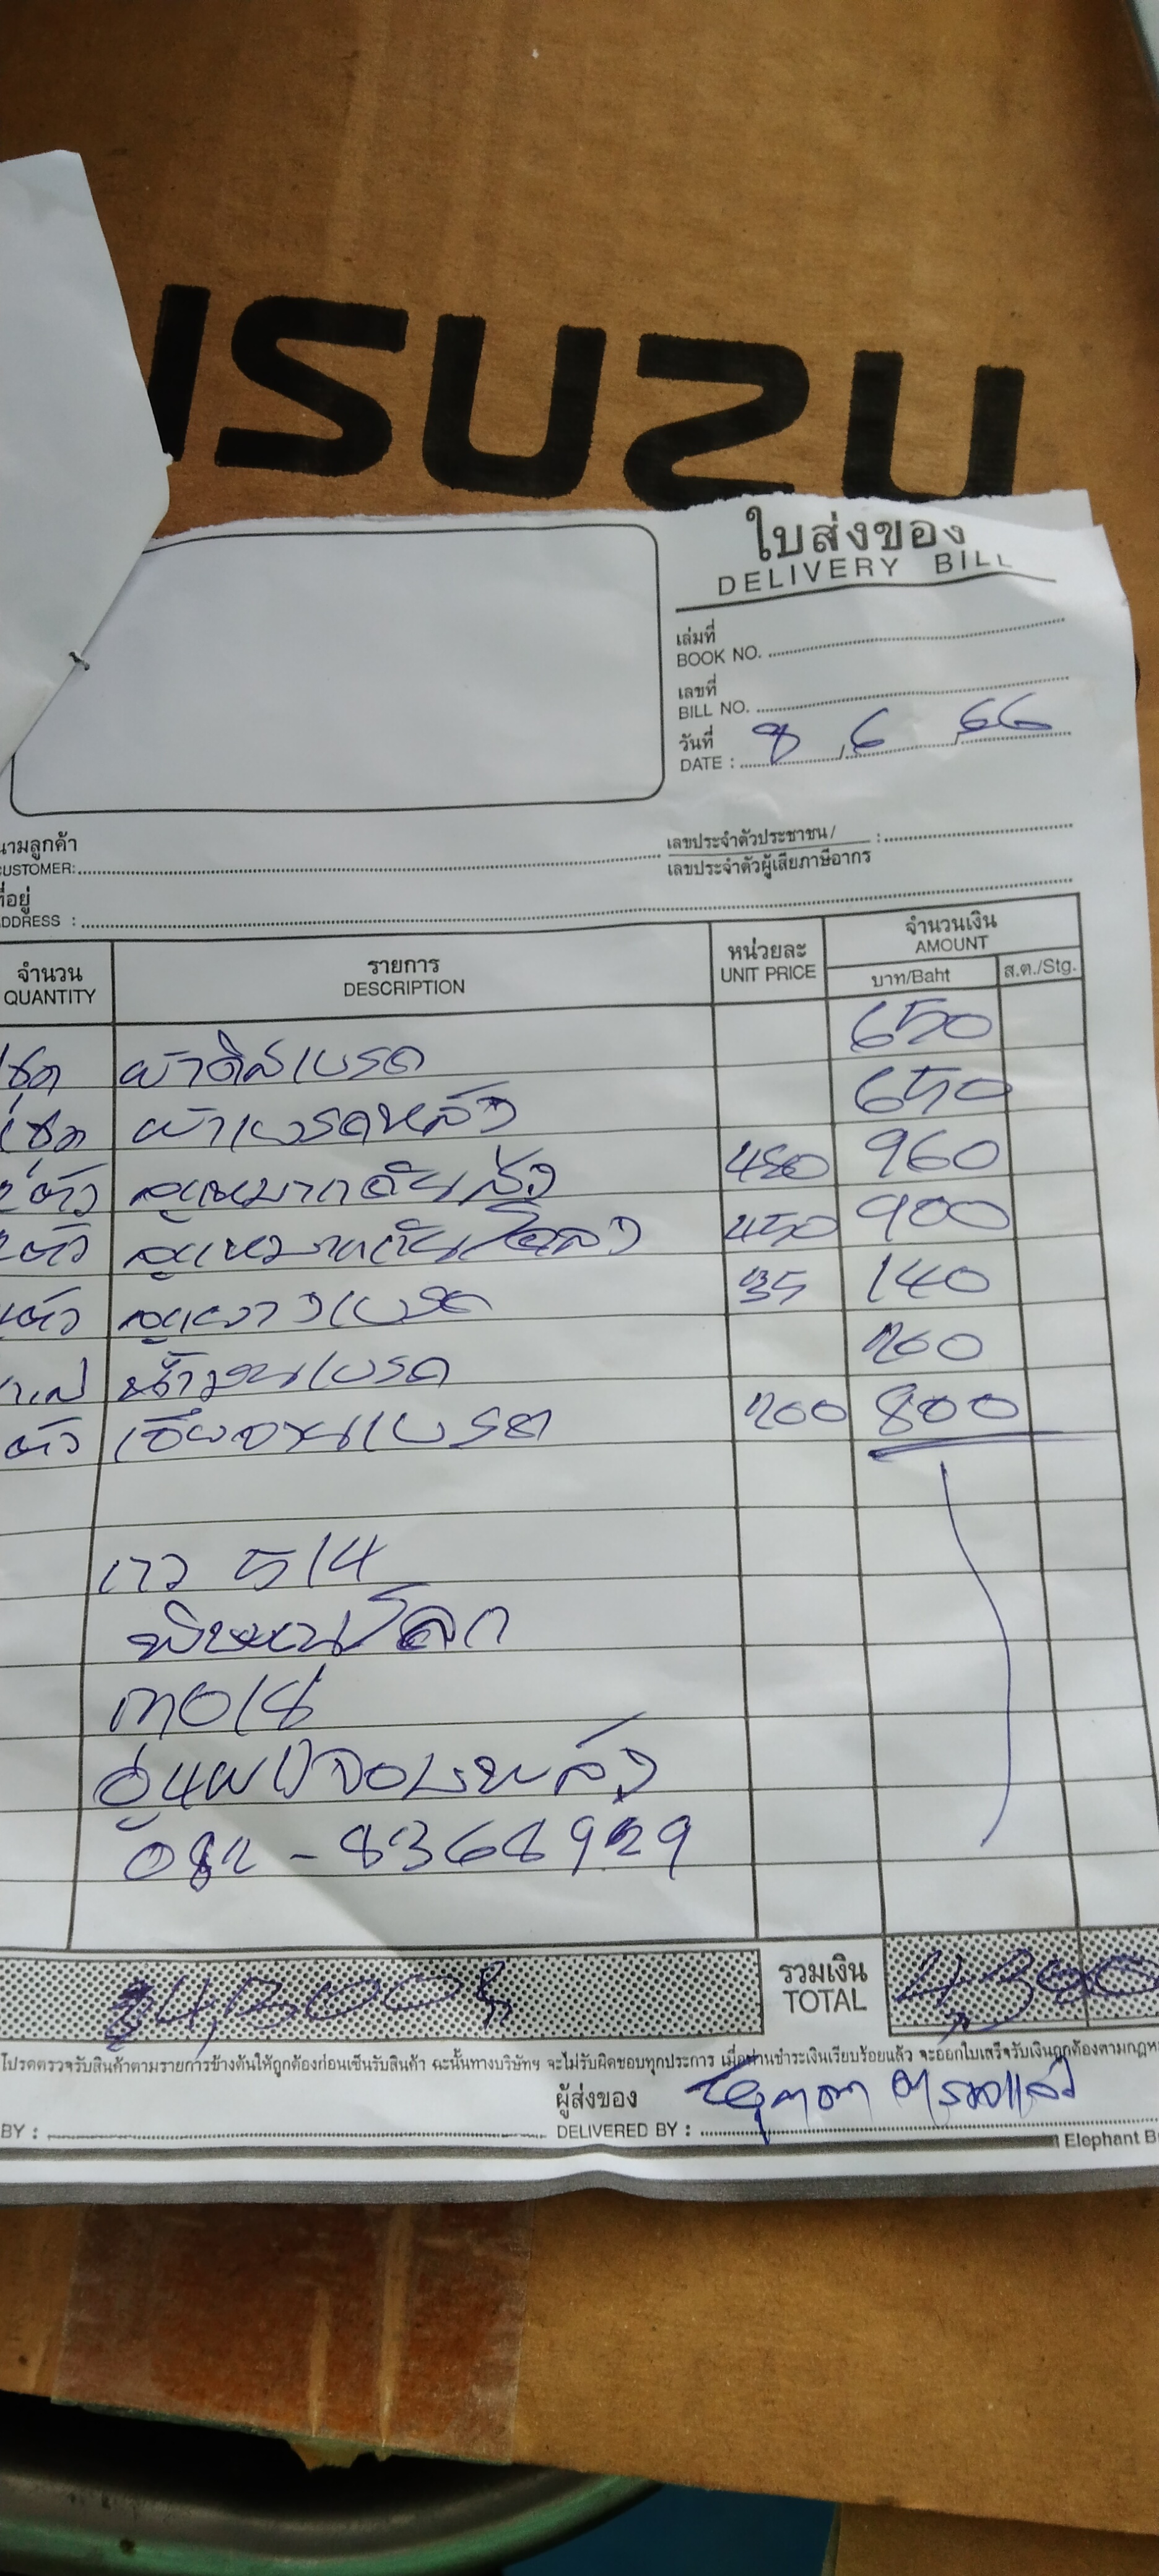 ISUZU
ใบส่งของ
DELIVERY BILL
เล่มที่
BOOK NO.
เลขที่
BILL NO.
วันที่
DATE : 8 / 6 / 66
นามลูกค้า
CUSTOMER:
เลขประจำตัวประชาชน /
เลขประจำตัวผู้เสียภาษีอากร :
ที่อยู่
ADDRESS :
จำนวน รายการ หน่วยละ จำนวนเงิน
QUANTITY DESCRIPTION UNIT PRICE AMOUNT
บาท/Baht ส.ต./Stg.
1 ชุด ผ้าดิสเบรค 650
1 ชุด ผ้าเบรคหลัง 650
2 ตัว ลูกหมากคันส่ง 480 960
2 ตัว ลูกหมากคันโยง 450 900
ตัว ลูกยางเบรค 35 140
น้ำมันเบรค 200
ตัว เบรค 200 800
514
พิษณุโลก
082-8368929
4,300
รวมเงิน
TOTAL 4,300
โปรดตรวจรับสินค้าตามรายการข้างต้นให้ถูกต้องก่อนเซ็นรับสินค้า ฉะนั้นทางบริษัทฯ จะไม่รับผิดชอบทุกประการ เมื่อท่านชำระเงินเรียบร้อยแล้ว จะออกใบเสร็จรับเงินถูกต้องตามกฎห
ผู้ส่งของ
BY :
DELIVERED BY :
Elephant B